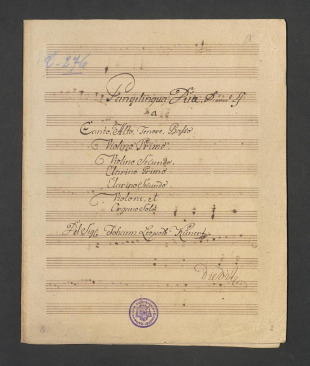 Pange lingua Duæ
a
Canto, Alto, Tenore, Basso
Violino Primo
Violino Secundo
Clarino Primo
Clarino Secundo
Violone, et
Organo Solo
Del Sig: Johann Leopold Kunert